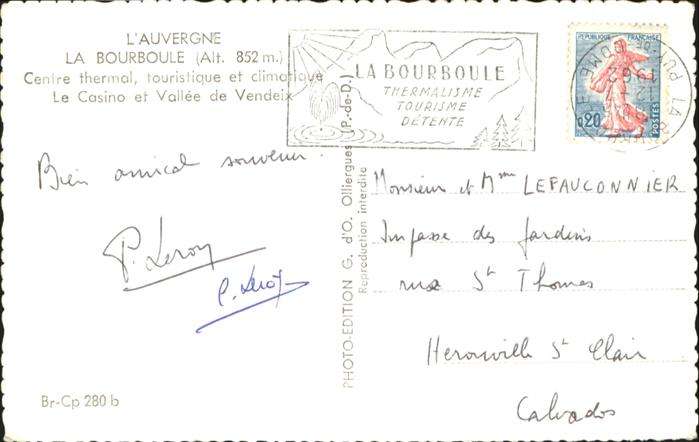 L'AUVERGNE
LA BOURBOULE (Alt. 852 m.)
Centre thermal, touristique et climatique
Le Casino et Vallée de Vendeix
LA BOURBOULE
THERMALISME
TOURISME
DÉTENTE
REPUBLIQUE FRANÇAISE
0,20
POSTES
LA BOURBOULE
PUY DE DOME
1962
Bien amical souvenir.
P. Leroy
C. Leroy
PHOTO-EDITION G. d'O. Olliergues (P.-de-D.)
Reproduction interdite
Monsieur et Mme LEFAUCONNIER
Impasse des Jardins
rue St Thomas
Herouville St Clair
Calvados
Br-Cp 280 b